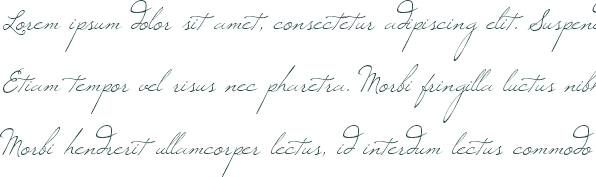 Lorem ipsum dolor sit amet, consectetur adipiscing elit. Suspend
Etiam tempor vel risus nec pharetra. Morbi fringilla luctus nibh
Morbi hendrerit ullamcorper lectus, id interdum lectus commodo